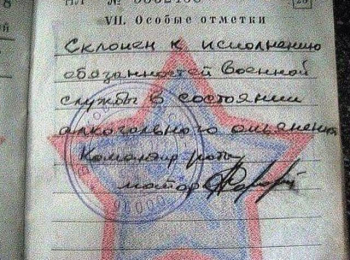 №
VII. Особые отметки
Склонен к исполнению
обязанностей военной
службы в состоянии
алкогольного опьянения
Командир роты
майор